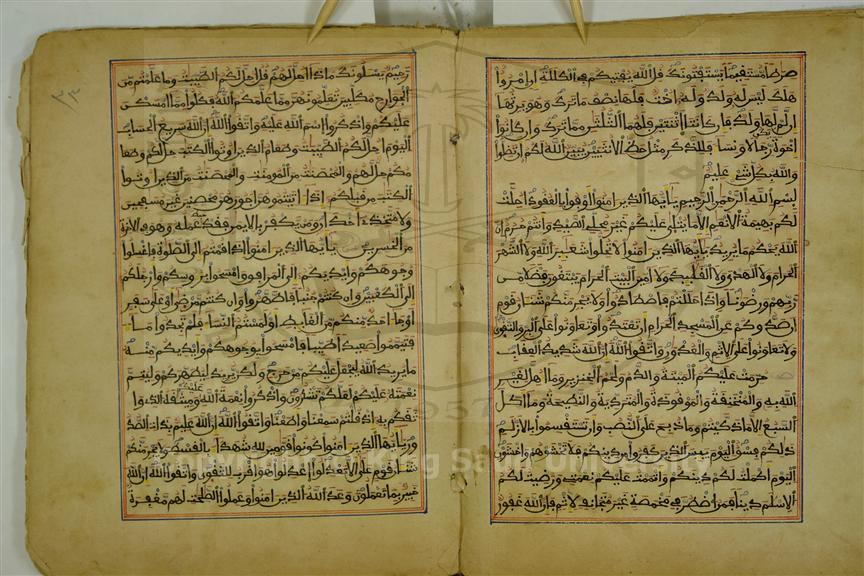 صرطا مستقيما يستفتونك قل الله يفتيكم في الكللة ان امرؤا
هلك ليس له ولد وله اخت فلها نصف ما ترك وهو يرثها
ان لم يكن لها ولد فان كانتا اثنتين فلهما الثلثن مما ترك وان كانوا
اخوة رجالا ونساء فللذكر مثل حظ الانثيين يبين الله لكم ان تضلوا
والله بكل شيء عليم
بسم الله الرحمن الرحيم يأيها الذين امنوا اوفوا بالعقود احلت
لكم بهيمة الانعم الا ما يتلى عليكم غير محلي الصيد وانتم حرم ان
الله يحكم ما يريد يأيها الذين امنوا لا تحلوا شعير الله ولا الشهر
الحرام ولا الهدي ولا القليد ولا امين البيت الحرام يبتغون فضلا من
ربهم ورضونا واذا حللتم فاصطادوا ولا يجرمنكم شنان قوم
ان صدوكم عن المسجد الحرام ان تعتدوا وتعاونوا على البر والتقوى
ولا تعاونوا على الاثم والعدون واتقوا الله ان الله شديد العقاب
حرمت عليكم الميتة والدم ولحم الخنزير وما اهل لغير
الله به والمنخنقة والموقوذة والمتردية والنطيحة وما اكل
السبع الا ما ذكيتم وما ذبح على النصب وان تستقسموا بالازلم
ذلكم فسق اليوم يئس الذين كفروا من دينكم فلا تخشوهم واخشون
اليوم اكملت لكم دينكم واتممت عليكم نعمتي ورضيت لكم
الاسلم دينا فمن اضطر في مخمصة غير متجانف لاثم فان الله غفور
رحيم يسلونك ماذا احل لهم قل احل لكم الطيبت وما علمتم من
الجوارح مكلبين تعلمونهن مما علمكم الله فكلوا مما امسكن
عليكم واذكروا اسم الله عليه واتقوا الله ان الله سريع الحساب
اليوم احل لكم الطيبت وطعام الذين اوتوا الكتب حل لكم وطعا
مكم حل لهم والمحصنت من المومنت والمحصنت من الذين اوتوا
الكتب من قبلكم اذا اتيتموهن اجورهن محصنين غير مسفحين
ولا متخذي اخدان ومن يكفر بالايمن فقد حبط عمله وهو في الاخرة
من الخسرين يأيها الذين امنوا اذا قمتم الى الصلوة فاغسلوا
وجوهكم وايديكم الى المرافق وامسحوا برءوسكم وارجلكم
الى الكعبين وان كنتم جنبا فاطهروا وان كنتم مرضى او على سفر
او جا احد منكم من الغايط او لمستم النساء فلم تجدوا ما
فتيمموا صعيدا طيبا فامسحوا بوجوهكم وايديكم منه
ما يريد الله ليجعل عليكم من حرج ولكن يريد ليطهركم وليتم
نعمته عليكم لعلكم تشكرون واذكروا نعمة الله عليكم وميثقه الذي وا
ثقكم به اذ قلتم سمعنا واطعنا واتقوا الله ان الله عليم بذات الصد
ور يأيها الذين امنوا كونوا قومين لله شهداء بالقسط ولا يجرمنكم
شنان قوم على الا تعدلوا اعدلوا هو اقرب للتقوى واتقوا الله ان الله
خبير بما تعملون وعد الله الذين امنوا وعملوا الصلحت لهم مغفرة
King Saud University
1957